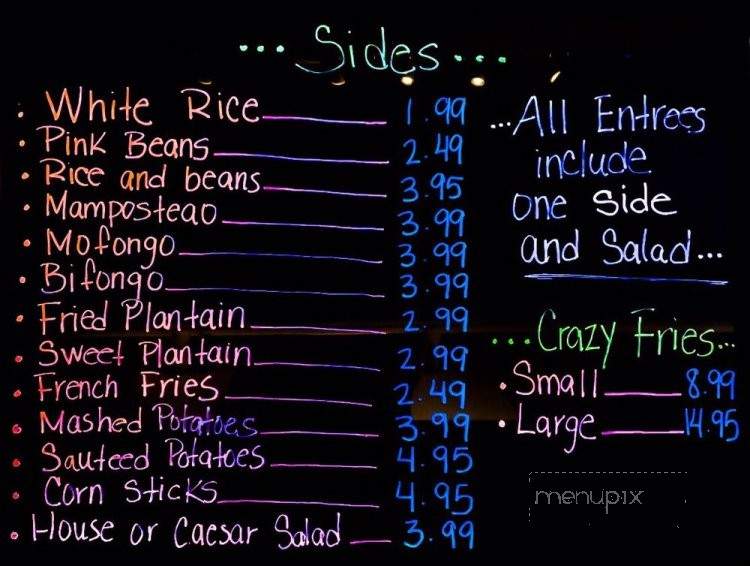 ... Sides ...
• White Rice 1.99
• Pink Beans 2.49
• Rice and beans 3.95
• Mamposteao 3.99
• Mofongo 3.99
• Bifongo 3.99
• Fried Plantain 2.99
• Sweet Plantain 2.99
• French Fries 2.49
• Mashed Potatoes 3.99
• Sauteed Potatoes 4.95
• Corn Sticks 4.95
• House or Caesar Salad 3.99
...All Entrees
include
one Side
and Salad...
...Crazy Fries...
• Small 8.99
• Large 14.95
menupix